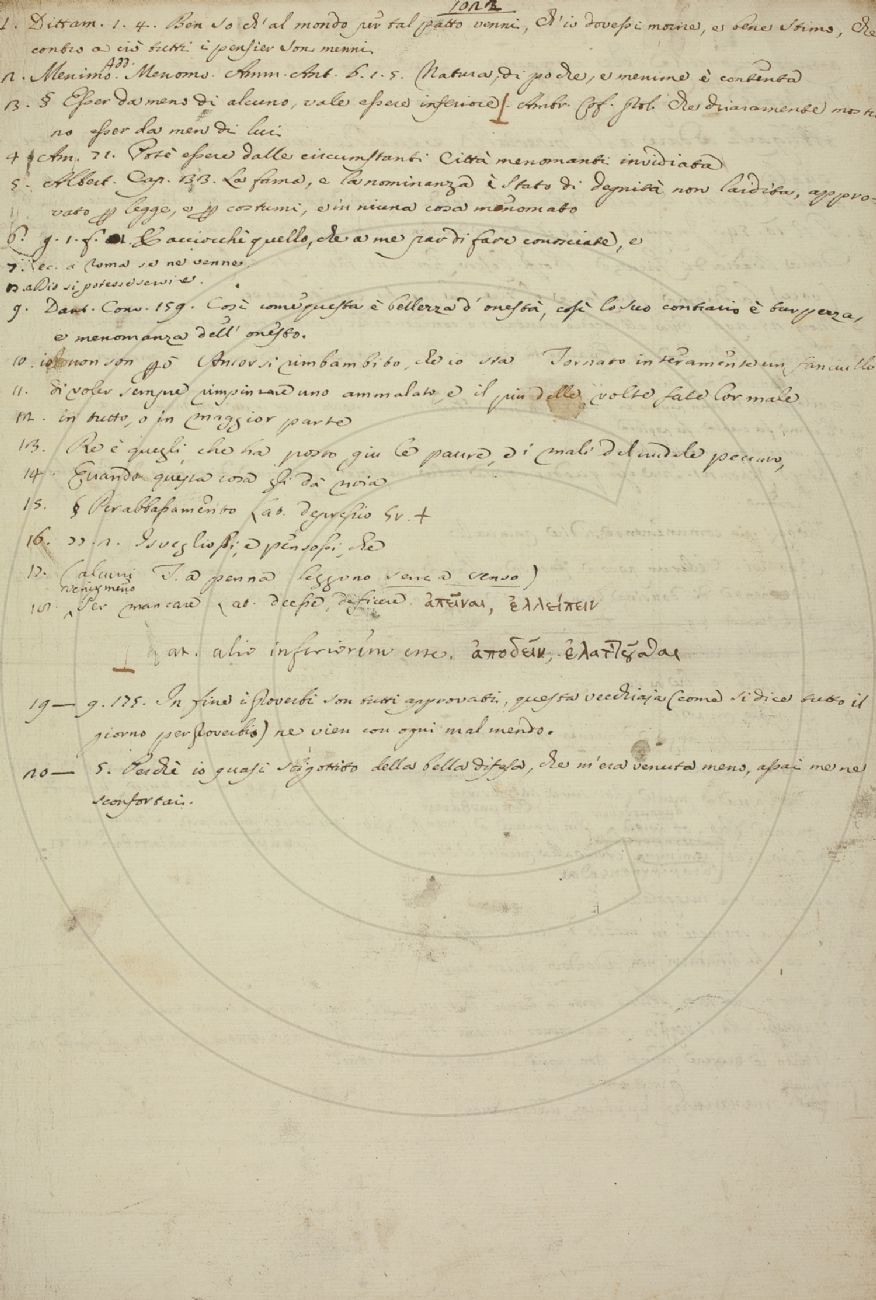 1023
1. Dittam. 1. 4. Ben so ch'al mondo per tal patto venni, Ch'io dovessi morire, e bene stimo, che
contro a ciò tutti i pensier son menni.
2. Menimo. Add. Menomo. Amm. Ant. 6. 1. 5. Natura di poche, e menime è contenta
3. § Esser da meno di alcuno, vale essere inferiore Ambr. Cof. Prol. Che chiaramente mostri
no esser da men di lui.
4 Am. 71. Potè essere dalle circumstanti Città menomanti invidiata
5. Albert. Cap. 133. La fama, e la nominanza è stato di degnità non laidita, appro-
vato p legge, e p costumi, e in niuna cosa menomato
6. g. 1. f. 1. Acciocchè quello, che a me par di fare conosciate, e
7. ec. a Roma se ne venne
8 a Dio si potesse servire.
9. Dant. Conv. 159. Così come questa è bellezza d'onestà, così lo suo contrario è turpezza,
e menomanza dell' onesto.
10. io non son Ancor si rimbambito, che io sia Tornato interamente un fanciullo
11. di voler sempre rimpinzare uno ammalato, e il più delle volte fate lor male
12. in tutto, o in maggior parte
13. Re è quegli, che ha posto giù le paure, e i mali del crudele peccato,
14. Quando questa cosa gli dà noia
15. § Per abbassamento Lat. depressio Gr. +
16. 77. 2. Isvegliossi, e pensossi, che
17. (alcuni T. a penna leggono senza senso)
18. Per venir meno mancare Lat. deesse, deficere. ἀπεῖναι, ἐλλείπειν
Lat. alio inferiorem esse. ἀποδεῖν, ἐλαττοῦσθαι
19 — g. 175. In fine i Proverbi son tutti approvati, questa vecchiaja (come si dice tutto il
giorno per Proverbio) ne vien con ogni mal mendo.
20 — 5. Perchè io quasi sbigottito della bella difesa, che m'era venuta meno, assai me ne
sconfortai.